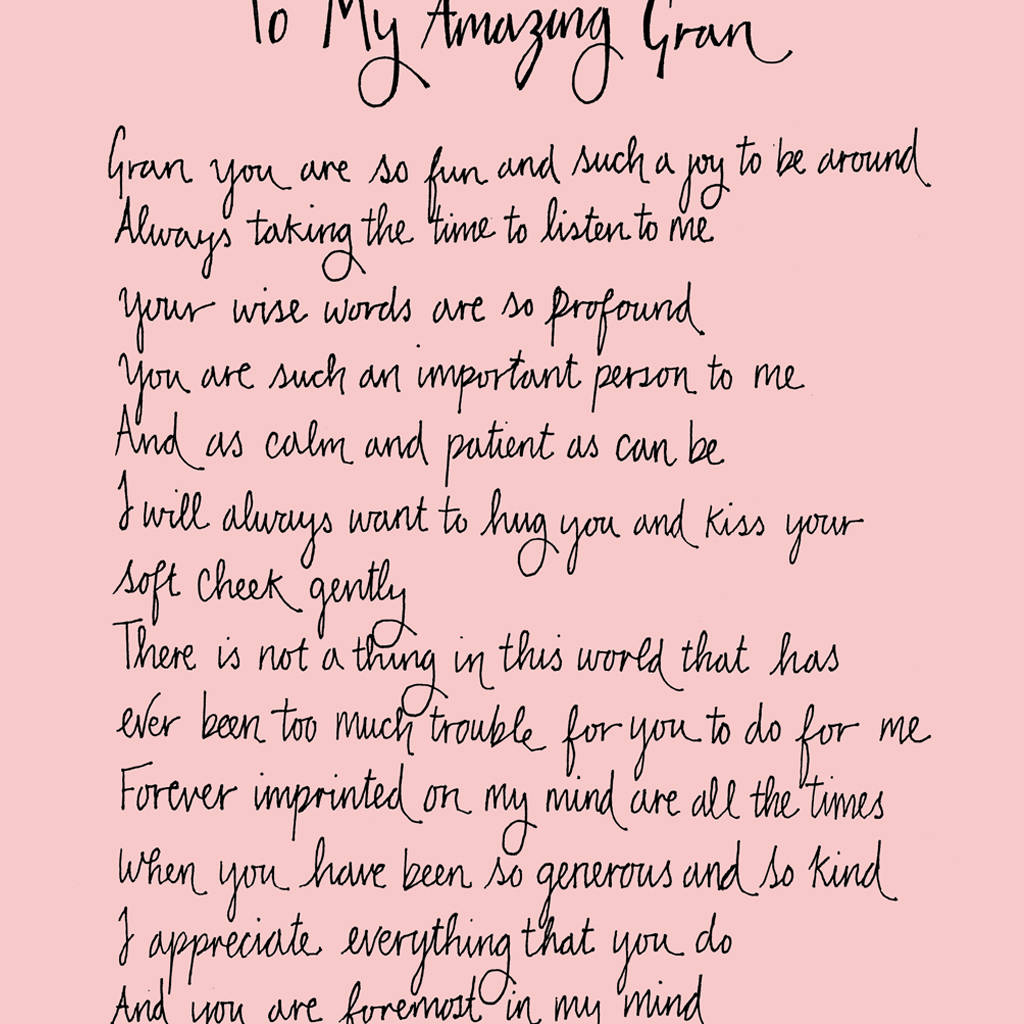 To My Amazing Gran
Gran you are so fun and such a joy to be around
Always taking the time to listen to me
Your wise words are so profound
You are such an important person to me
And as calm and patient as can be
I will always want to hug you and kiss your
soft cheek gently
There is not a thing in this world that has
ever been too much trouble for you to do for me
Forever imprinted on my mind are all the times
When you have been so generous and so kind
I appreciate everything that you do
And you are foremost in my mind